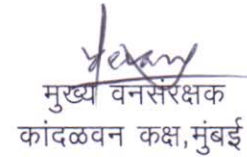 मुख्य वनसंरक्षक
कांदळवन कक्ष,मुंबई